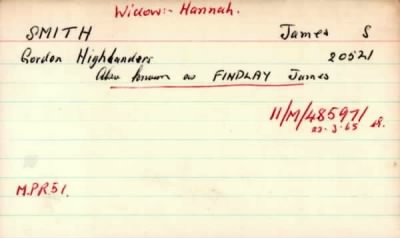 Widow:- Hannah.
SMITH James S
Gordon Highlanders 20521
Also known as FINDLAY James
11/M/48597/
22.3.65
M.PR51.